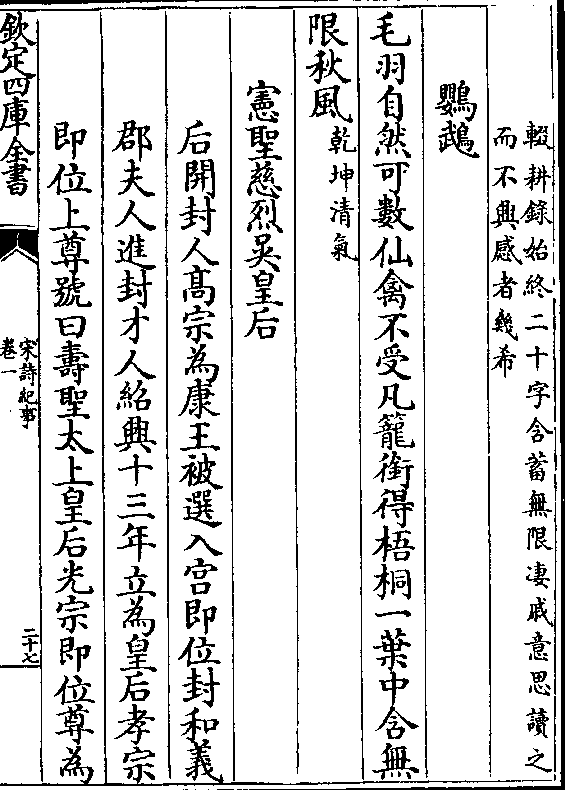 輟耕錄始終二十字含蓄無限凄戚意思讀之
而不興感者㡬希
鸚鵡
毛羽自然可數仙禽不受凡籠銜得梧桐一葉中含無
限秋風乾坤清氣
憲聖慈烈吳皇后
后開封人髙宗為康王被選入宫即位封和義
郡夫人進封才人紹興十三年立為皇后孝宗
即位上尊號曰壽聖太上皇后光宗即位尊為
欽定四庫全書
宋詩紀事
卷一
二十七